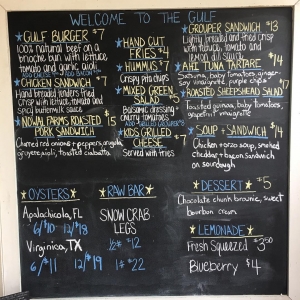 WELCOME TO THE GULF
GULF BURGER $7
100% natural beef on a
brioche bun with lettuce
tomato and garlic aioli
ADD CHEESE ADD BACON
CHICKEN SANDWICH $7
Hand breaded tenders fried
crisp with lettuce, tomato and
spicy buttermilk sauce
NIMAN FARMS ROASTED $
PORK SANDWICH
Charred red onions + peppers, arugula,
gruyere, aioli, toasted ciabatta
HAND CUT
FRIES $4
HUMMUS $7
Crispy pita chips
MIXED GREEN
SALAD $5
Balsamic dressing +
cherry tomatoes
KIDS GRILLED
CHEESE $7
Served with fries
GROUPER SANDWICH $13
Lightly breaded and fried crisp
with lettuce, tomato and
lemon dill sauce
AHI TUNA TARTARE $14
Satsuma, baby tomatoes, ginger-
soy vinaigrette, purple chips
ROASTED SHEEPSHEAD SALAD
Toasted guinoa, baby tomatoes,
grapefruit vinaigrette
SOUP + SANDWICH $14
Chicken + orzo soup, smoked
cheddar + bacon sandwich
on sourdough
OYSTERS
Apalachicola, FL
6/$10 12/$18
Virginica, TX
6/$11 12/$19
RAW BAR
SNOW CRAB
LEGS
1/2# $12
1# $22
DESSERT $5
Chocolate chunk brownie, sweet
bourbon cream
LEMONADE
Fresh Squeezed $3.50
Blueberry $4